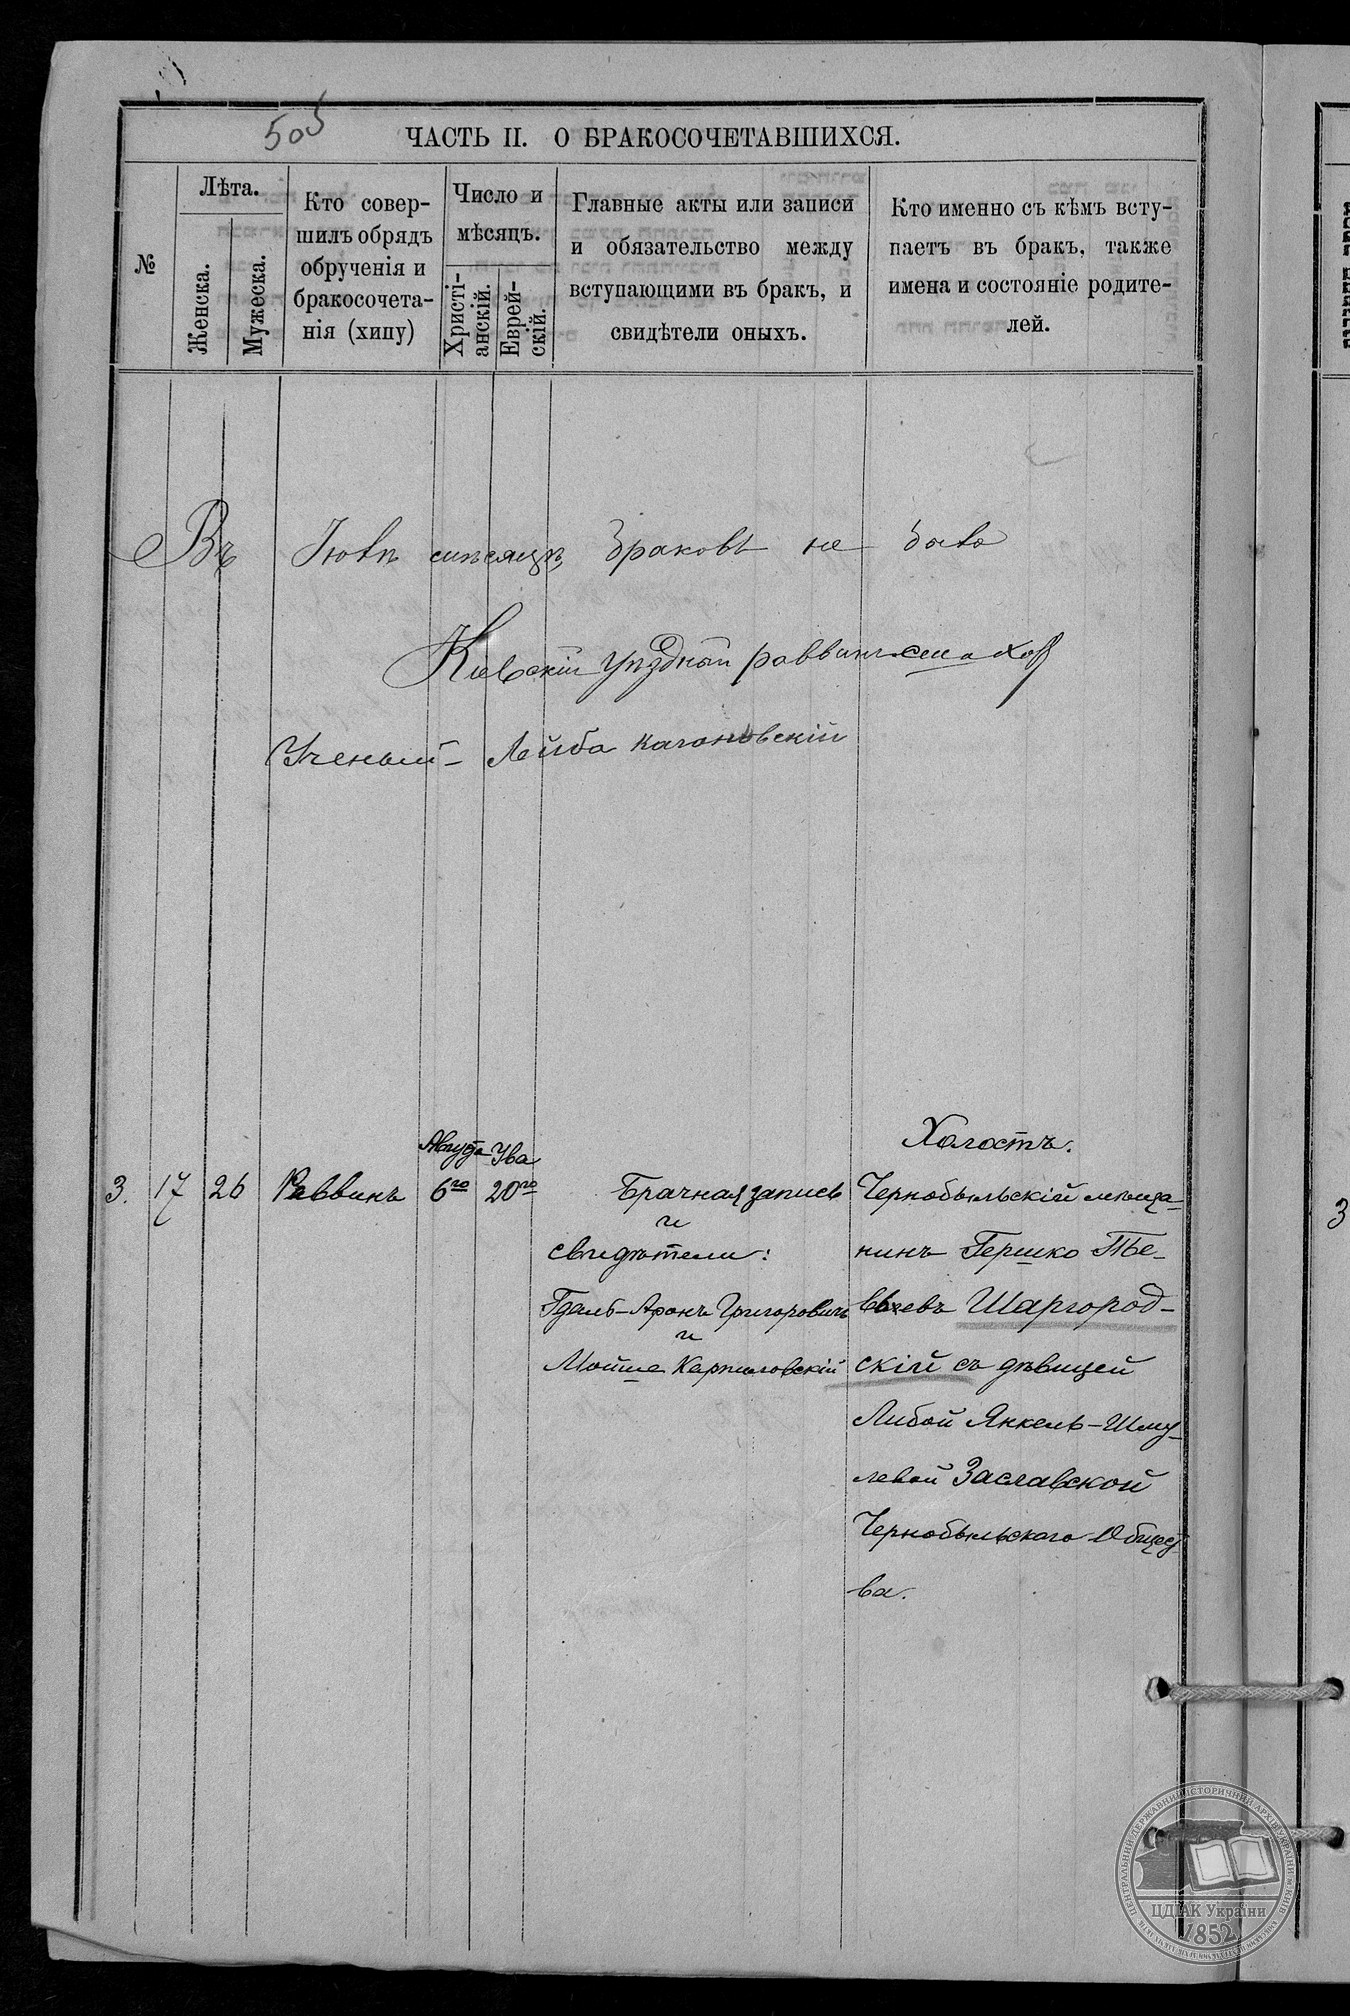 505
ЧАСТЬ II. О БРАКОСОЧЕТАВШИХСЯ.
№
Лѣта.
Женска.
Мужеска.
Кто совер-
шилъ обрядъ
обрученія и
бракосочета-
нія (хипу)
Число и
мѣсяцъ.
Христі-
анскій.
Еврей-
скій.
Главные акты или записи
и обязательство между
вступающими въ бракъ, и
свидѣтели оныхъ.
Кто именно съ кѣмъ всту-
паетъ въ бракъ, также
имена и состояніе родите-
лей.
Въ Іюлѣ мѣсяцѣ браковъ не было
Кіевскій уѣздный раввинъ
Ученый - Лейба Кагановскій
Августа Ува
Холостъ.
3. 17 26 Раввинъ 6го 20го
Брачная запись
и
свидѣтели:
Гдаль-Аронъ Григоровичъ
и
Мойше Карпиловскій
Чернобыльскій мѣща-
нинъ Гершко Тье-
вьевъ Шаргород-
скій съ дѣвицей
Либой Янкель-Шму-
левой Заславской
Чернобыльскаго Общест-
ва.
3
ЦЕНТРАЛЬНИЙ ДЕРЖАВНИЙ ІСТОРИЧНИЙ АРХІВ УКРАЇНИ М. КИЇВ
ЦДІАК України
1852